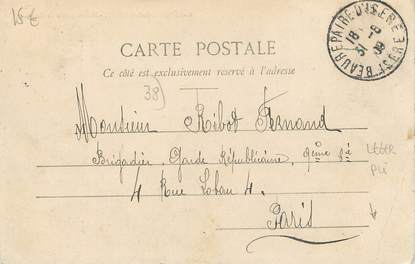 15€
BEAUREPAIRE D'ISÈRE
ISÈRE
CARTE POSTALE
Ce côté est exclusivement réservé à l'adresse
38)
Monsieur Ribot Fernand
Brigadier Garde Républicaine,
4 Rue Lobau 4.
Paris
LEGER
PLI